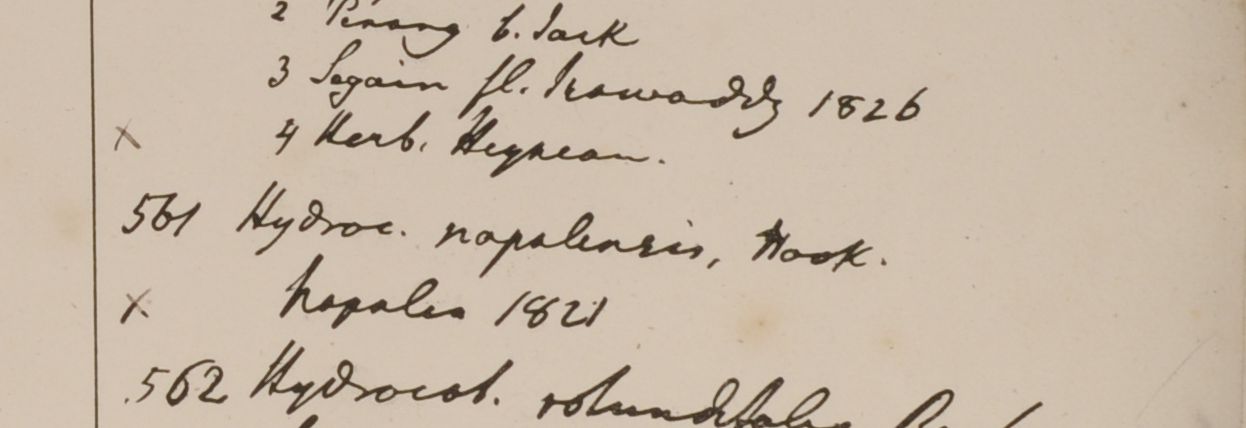 2 Penang b. Jack
3 Segain fl. Irawaddy 1826
x 4 Herb. Heynean.
561 Hydroc. napalensis, Hook.
x Napalia 1821
562 Hydrocot. rotundifolia